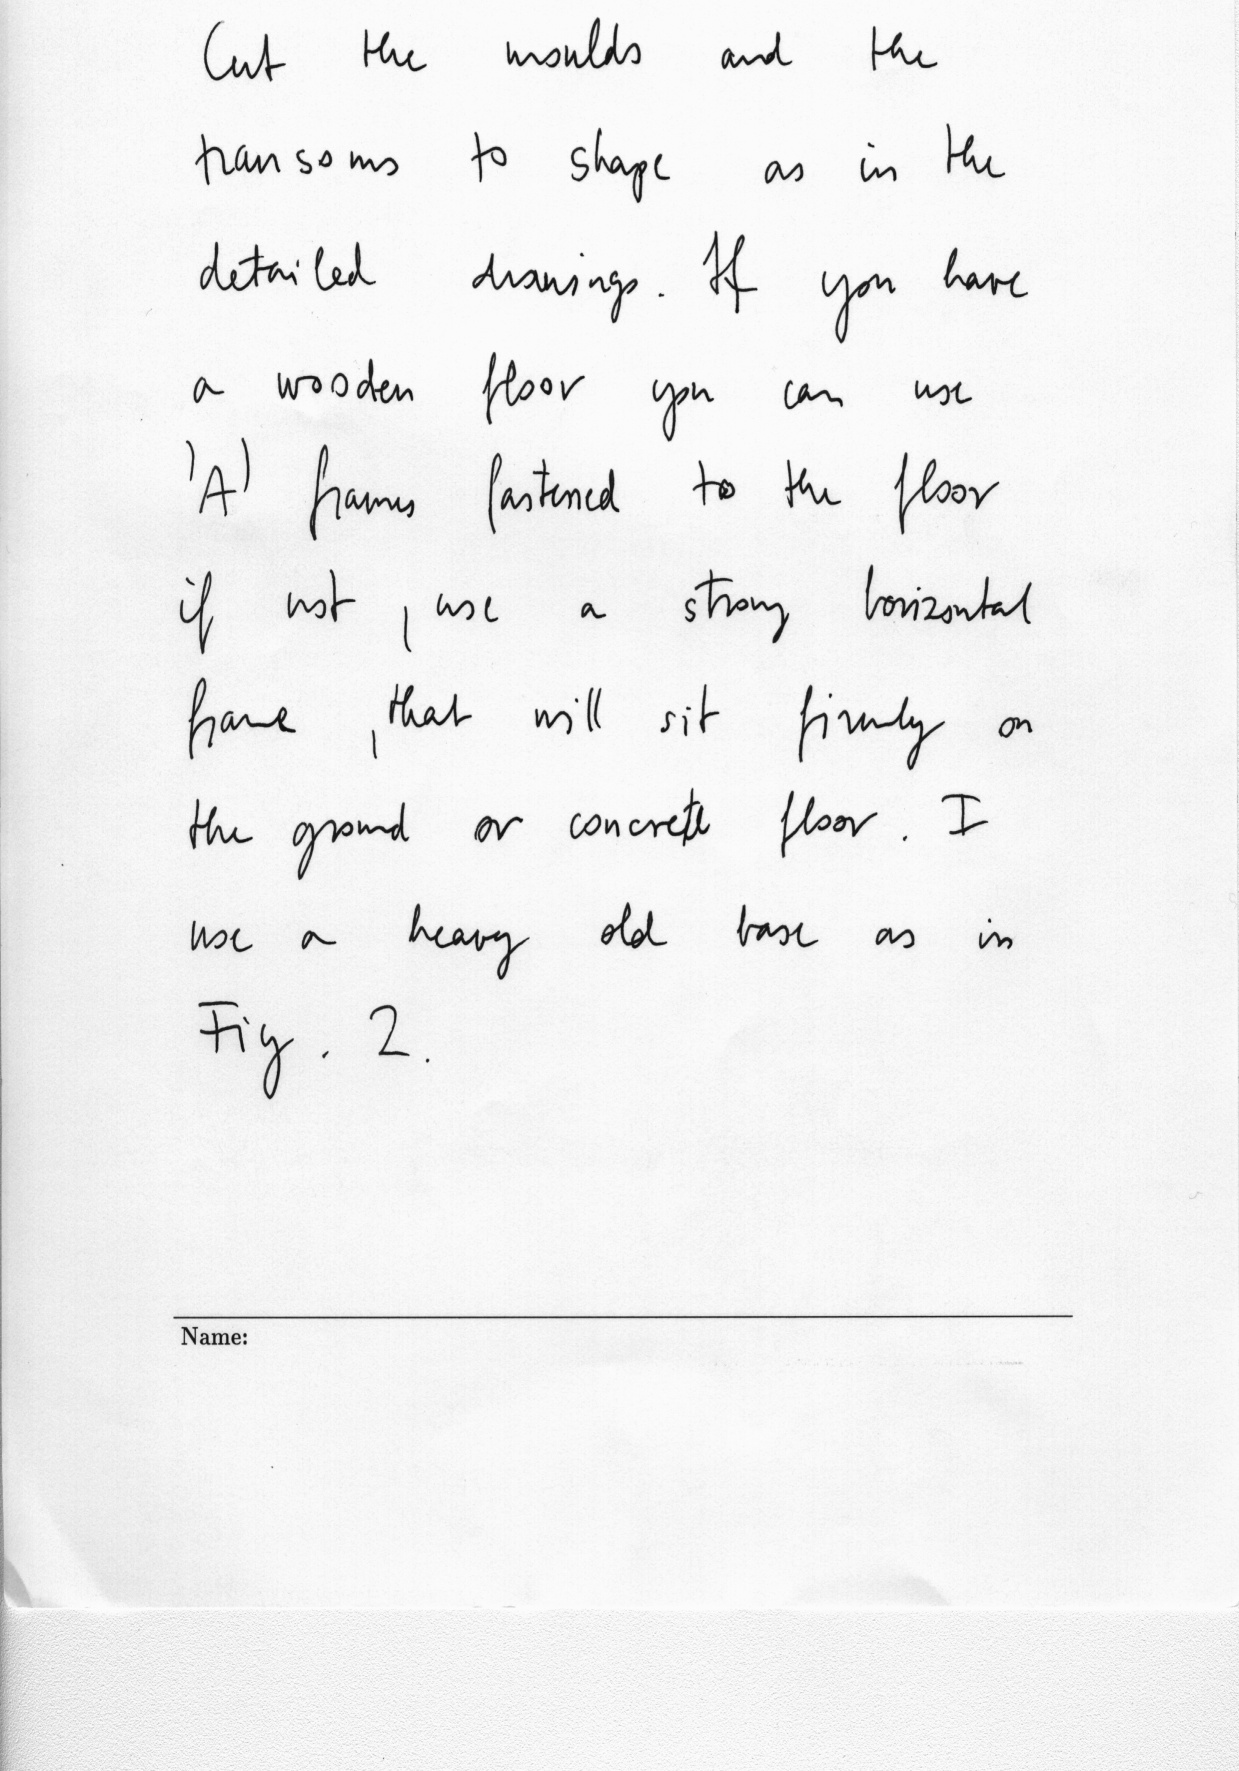 Cut the moulds and the
transoms to shape as in the
detailed drawings. If you have
a wooden floor you can use
'A' frames fastened to the floor
if not, use a strong horizontal
frame, that will sit firmly on
the ground or concrete floor. I
use a heavy old base as in
Fig. 2.
Name: